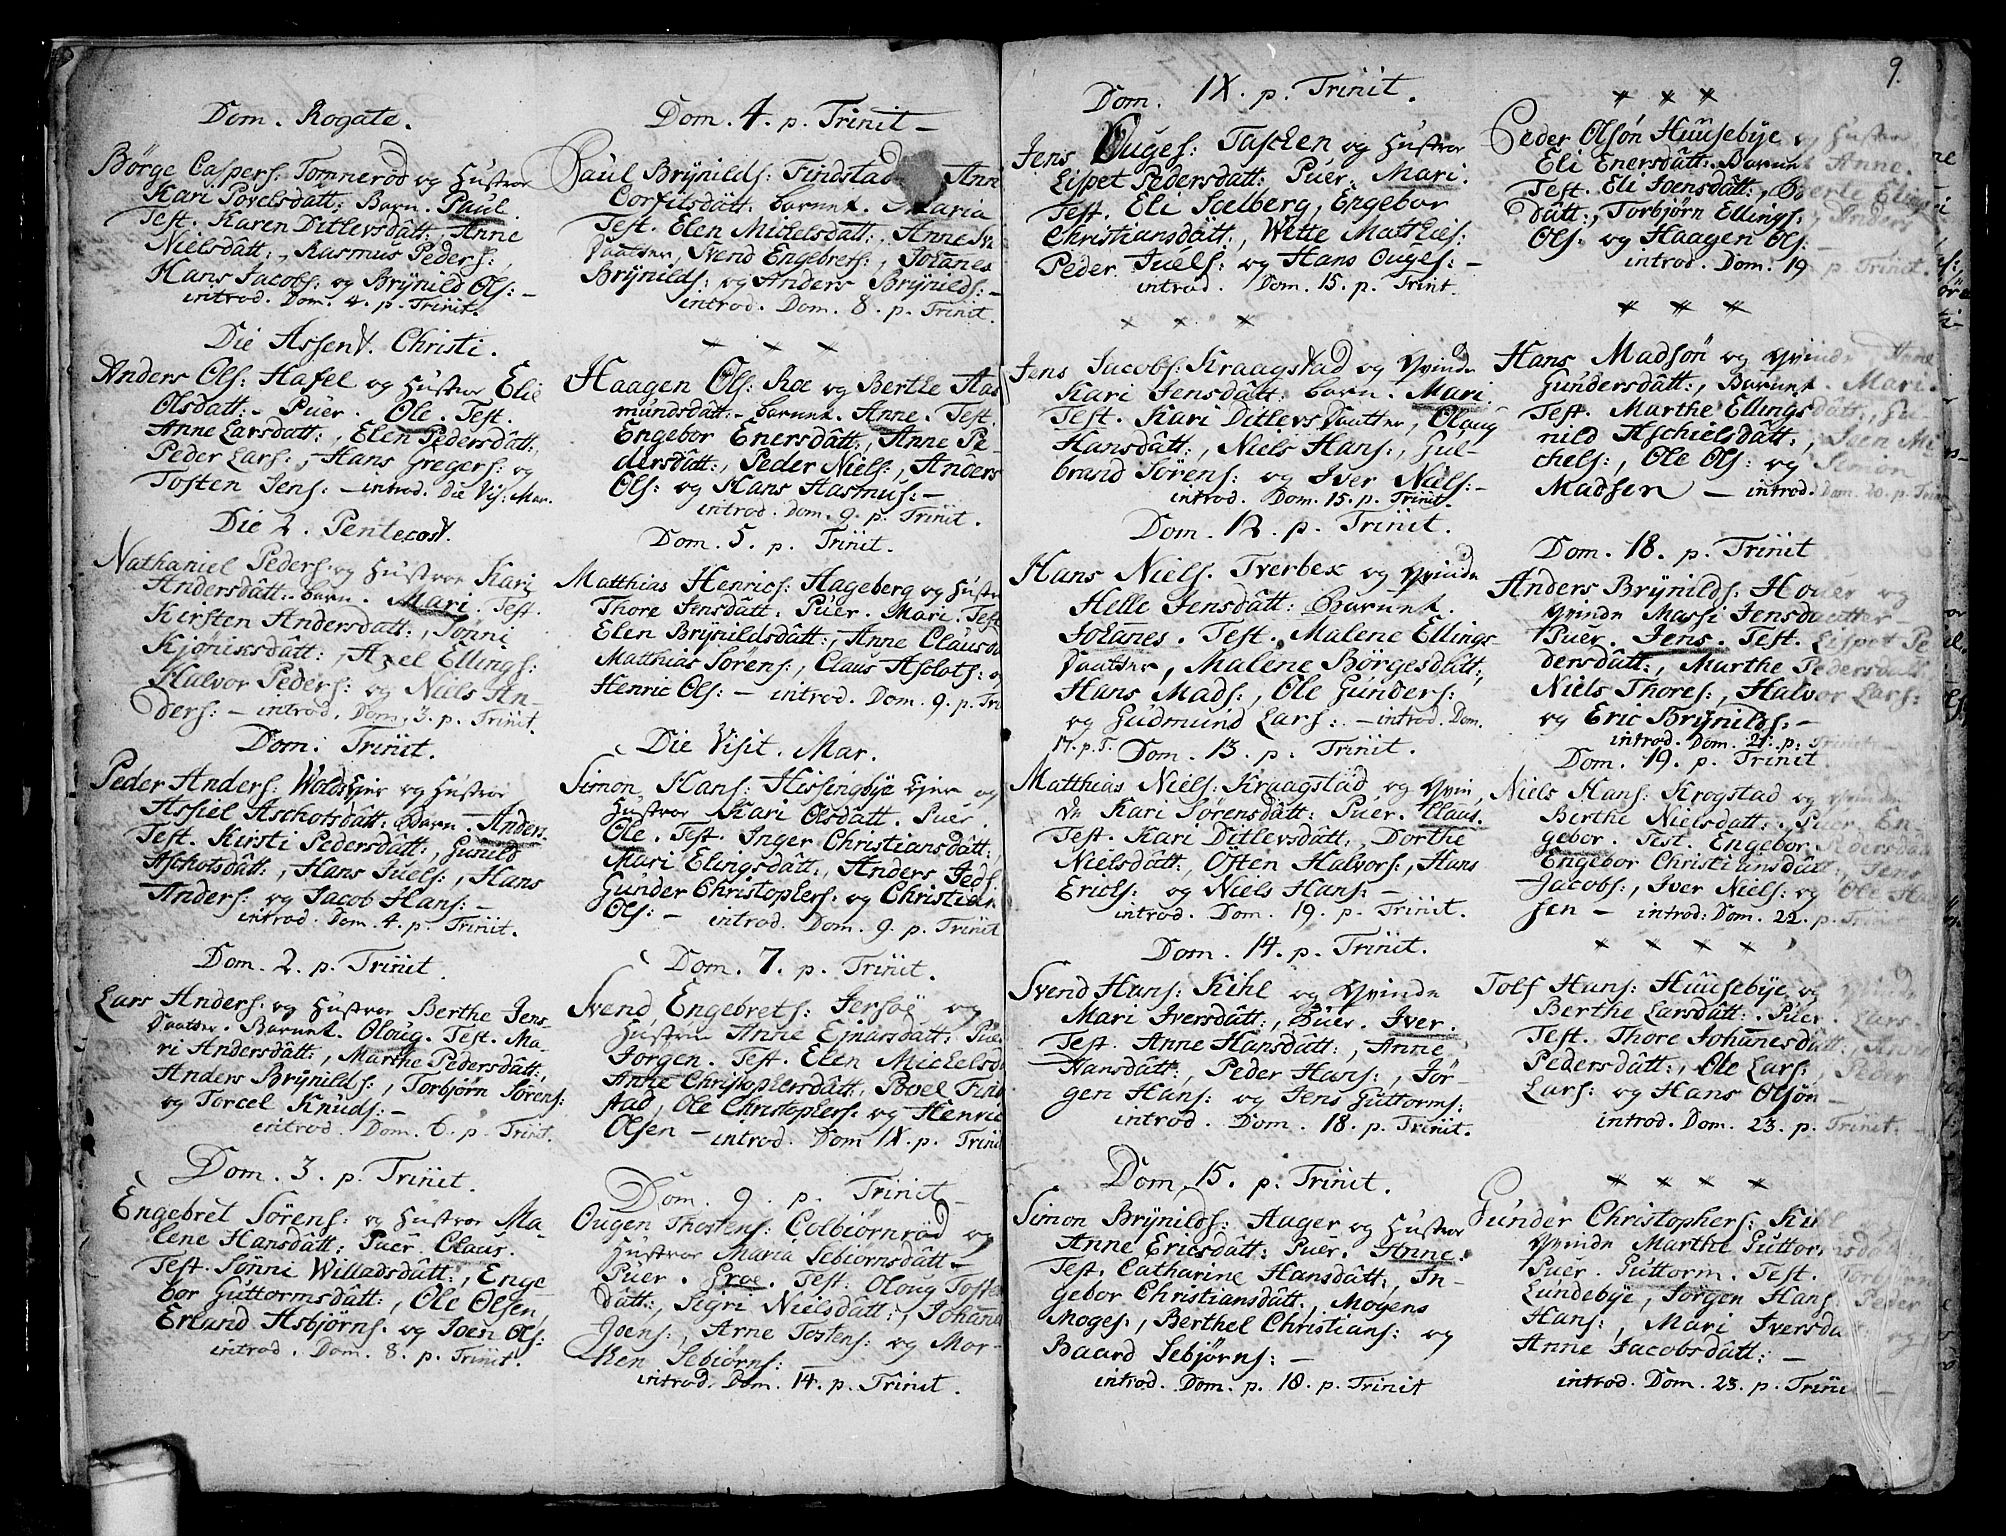 Dom. Rogate.
Börge Caspers: Tomnerød og Hustroe
Kari Povelsdått: Barn. Paul.
Test. Karen Ditlevsdått:, Anne
Nielsdått:, Rasmus Peders:,
Hans Jacobs: og Brÿnild Ols: –
introd. Dom. 4. p. Trinit.
Die Assent. Christi.
Anders Ols: Hafel og Hustroe Elie
Olsdatt: – Puer. Ole. Test.
Anne Larsdatt:, Elen Pedersdatt:,
Peder Lars:, Hans Gregers: og
Tosten Jens: – introd. Die Vis: Mar.
Die 2. Pentecost.
Nathaniel Peders: og Hustroe Kari
Andersdått: barn. Mari. Test.
Kirsten Andersdatt:, Tønni
Kjønixsdått:, Axel Ellings:
Halvor Peders: og Niels An-
ders: – introd. Dom. 3. p. Trinit.
Dom: Trinit.
Peder Anders: Wolds Ejer og Hustroe
Assiel Aschotsdått: Barn. Anders.
Test. Kirsti Pedersdått:, Gunild
Aschotsdått:, Hans Juels:, Hans
Anders: og Jacob Hans: –
introd. Dom. 4. p. Trinit.
Dom. 2. p. Trinit.
Lars Anders: og Hustroe Berthe Jens-
Daatter. Barnet Oloug. Test. Ma-
ri Andersdått:, Marthe Pedersdått:,
Anders Brÿnilds:, Torbjørn Sørens:
og Torcel Knuds: –
introd. Dom. 6. p. Trinit.
Dom. 3. p. Trinit.
Engebret Sörens: og Hustroe Ma-
lene Hansdått: Puer. Claus.
Test. Tønni Willadsdått:, Enge
bor Guttormsdått:, Ole Olsen,
Erland Asbjørns: og Joen Ols:
introd. Dom. 8. p. Trinit.
Dom. 4. p. Trinit –
Paul Brÿnilds: Findstad Anne
Corfitsdått: barnet. Maria
Test. Elen Michelsdått:, Anne Sv
Daatter, Svend Engebrets:, Johanes
Brÿnilds: og Anders Brÿnilds: –
introd. Dom. 8. p. Trinit.
× × ×
Haagen Ols: Roe og Berthe Aas
mundsdått: – barnet. Anne. Test.
Engebor Enersdått:, Anne Pe-
dersdått:, Peder Niels:, Anders
Ols: og Hans Aasmus: –
introd. Dom. 9. p. Trinit.
Dom. 5. p. Trinit.
Matthias Henrics: Hageberg og Hustr
Thore Jensdått: Puer. Mari. Test
Elen Brÿnildsdått:, Anne Clausd
Matthias Sörens:, Claus Asolots: og
Henric Ols: – introd. Dom. 9. p. Tri
Die Visit. Mar.
Simon Hans: Hissingbÿe Ejer og
Hustroe Kari Olsdått. Puer.
Ole. Test. Inger Christiansdått:,
Mari Elingsdått:, Anders Jeds:
Gunder Christophers: og Christian
Ols: – introd. Dom. 9. p. Trinit
Dom. 7. p. Trinit.
Svend Engebrets: Jersøe og
Hustroe Anne Ejnarsdått: Puer
Jorgen. Test. Elen Mickelsd
Anne Christophersdått:, Povel Find
stad, Ole Christophers: og Henric
Olsen – introd. Dom IX. p. Trinit
Dom. 9. p. Trinit –
Ougen Thostens: Colbiørnrød og
Hustroe Maria Sebiørnsdått –
Puer. Groe. Test: Oloug Tosten
dått:, Sigri Nielsdått:, Johanne
Joens:, Arne Tostens: og Mor-
ten Sebiørns: –
introd. Dom. 14. p. Trinit.
9.
Dom. IX. p. Trinit.
Jens Ouges: Taschen og Hustroe
Lispet Pedersdatt: Puer. Mari.
Test. Eli Soelberg, Engebor
Christiansdått:, Wette Matthies:
Peder Juels: og Hans Ouges: –
introd. Dom. 15. p. Trinit.
× × ×
Jens Jacobs: Kraagstad og Qvinde
Kari Jensdått: barn. Mari.
Test. Kari Ditlevs Daatter, Oloug
Hansdått:, Niels Hans:, Gul-
brand Sörens: og Iver Niels: –
introd. Dom. 15. p. Trinit.
Dom. 12. p. Trinit.
Hans Niels. Tverbex og Qvinde
Helle Jensdått: Barnet.
Johanes. Test. Malene Ellings-
Daatter, Malene Börgesdått:,
Hans Mads:, Ole Gunders:
og Gudmund Lars: – introd. Dom.
17. p. T. Dom. 13. p. Trinit.
Matthias Niels: Kraagstad og Qvin
de Kari Sörensdått: Puer. Claus.
Test. Kari Ditlevsdått:, Dorthe
Nielsdått:, Östen Halvors:, Hans
Erichs: og Niels Hans: –
introd. Dom. 19. p. Trinit.
Dom. 14. p. Trinit.
Svend Hans: Kihl og Qvinde
Mari Iversdått:, Puer. Iver.
Test. Anne Hansdått:, Anne
Hansdått:, Peder Hans:, Jör-
gen Hans: og Jens Guttorms:
introd. Dom. 18. p. Trinit.
Dom. 15. p. Trinit.
Simon Brÿnilds: Aager og Hustroe
Anne Ericsdått: Puer. Anne.
Test. Catharine Hansdått:, In-
gebor Christiansdått:, Mogens
Moges:, Berthel Christians: og
Baard Sebjørns: –
introd. Dom. p. 18. p. Trinit
× × ×
Peder Olsön Huusebÿe og Hustroe
Eli Enersdått: Barnet Anne.
Test. Eli Joensdått:, Berte Elling
dått:, Torbjørn Ellings: Anders
Ols: og Haagen Ols: –
introd. Dom. 19 p. Trinit.
× × ×
Hans Madsön og Qvinde Anne
Gundersdått:, Barnet. Mari.
Test. Marthe Ellingsdått:, Gu-
nild Aschielsdått:, Joen Mi
chels:, Ole Ols: og Simon
Madsen – introd. Dom. 20. p. Trin
Dom. 18. p. Trinit
Anders Brÿnilds: Hover og
Qvinde Massi Jensdaatter –
Puer. Jens. Test. Lispet Pe
dersdått:, Marthe Pedersdatt:
Niels Thores:, Halvor Lars:
og Eric Brÿnilds. –
introd. Dom. 21. p: Trinit
Dom. 19. p. Trinit
Niels Hans: Krogstad og Qvinde
Berthe Nielsdått:. Puer En-
gebor. Test. Engebor Pedersdåa
Engebor Christiansdått:, Jens
Jacobs:, Iver Niels: og Ole Han
sen – introd: Dom. 22. p. Trinit
× × × ×
Tolf Hans: Huusebÿe og Qvinde
Berthe Larsdått: Puer. Lars
Test. Thore Johanesdått:, Anne
Pedersdått:, Ole Lars:, Peder
Lars: og Hans Olsön –
introd. Dom. 23. p. Trinit. –
× × × ×
Gunder Christophers: Kihl
Qvinde Marthe Guttormsdått
Puer. Guttorm. Test. Torbjørn
Lundebÿe, Jørgen Hans: Peder
Hans:, Mari Iversda og
Anne Jacobsdått: –
introd. Dom. 23. p: Trinit –